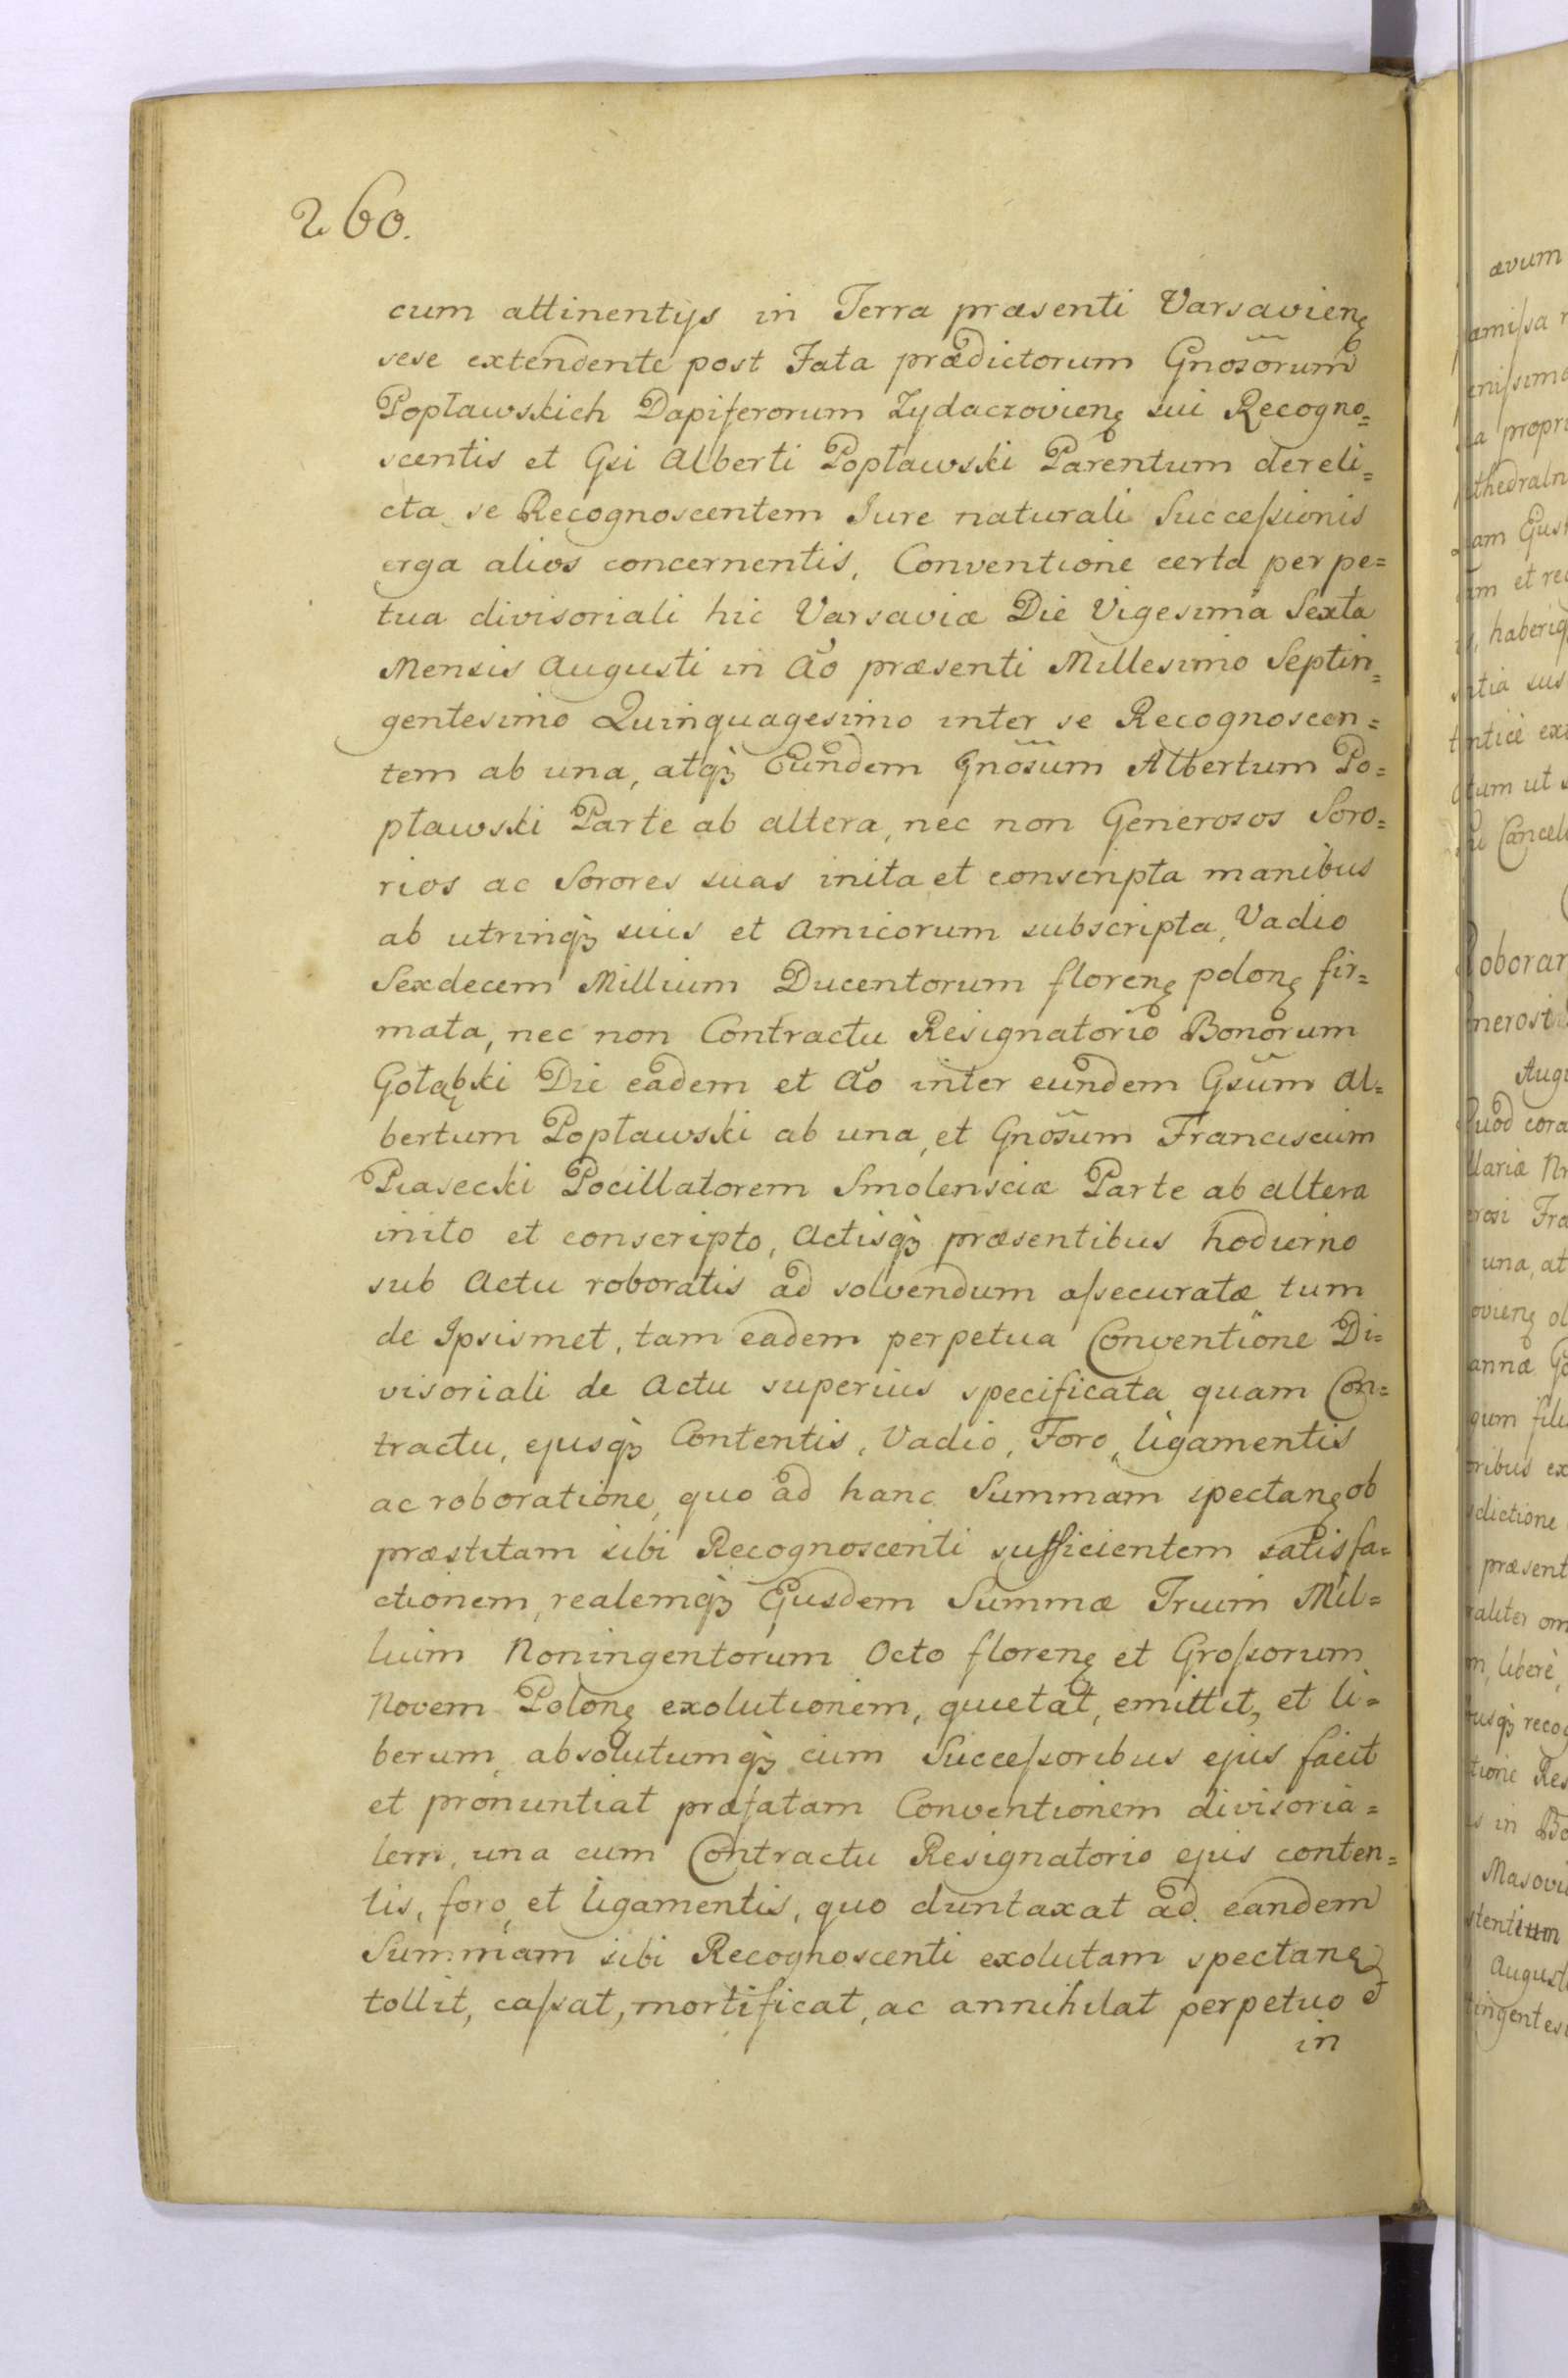 260.
cum attinentijs in Terra præsenti Varsavienę
sese extendente post Fata prædictorum Gnõsorum
Popławskich Dapiferorum Zydaczovienę sui Recogno=
scentis et Gsi Alberti Popławski Parentum dereli=
cta, se Recognoscentem Jure naturali Succeſsionis
erga alios concernentis, Conventione certa perpe=
tua divisoriali hic Varsaviæ Die Vigesima Sexta
Mensis Augusti in Aõ præsenti Millesimo Septin=
gentesimo Quinquagesimo inter se Recognoscen=
tem ab una, atqꝫ Eundem Gnõsum Albertum Po=
pławski Parte ab altera, nec non Generosos Soro=
rios ac Sorores suas inita et conscripta manibus
ab utrinqꝫ suis et Amicorum subscripta, Vadio
Sexdecem Millium Ducentorum florenę polonę fir=
mata, nec non Contractu Resignatorio Bonorum
Gołąbki Die eadem et Aõ inter eundem Gsum Al=
bertum Popławski ab una, et Gnõsum Franciscum
Piasecki Pocillatorem Smolensciæ Parte ab altera
inito et conscripto, Actisqꝫ præsentibus hodierno
sub Actu roboratis ad solvendum aſsecuratæ tum
de Ipsismet, tam eadem perpetua Conventione Di=
visoriali de Actu superius specificata quam Con=
tractu, ejusqꝫ Contentis, Vadio, Foro, ligamentis
ac roboratione, quo ad hanc Summam spectanę ob
præstitam sibi Recognoscenti sufficientem satisfa=
ctionem, realemqꝫ Ejusdem Summæ Trium Mil=
lium Noningentorum Octo florenę et Groſsorum
Novem Polonę exolutionem, quietat, emittit, et li=
berum, absolutumqꝫ cum Succeſsoribus ejus facit
et pronuntiat præfatam Conventionem divisoria=
lem, una cum Contractu Resignatorio ejus conten=
tis, foro, et ligamentis, quo duntaxat ad eandem
Summam sibi Recognoscenti exolutam spectanę
tollit, caſsat, mortificat, ac annihilat perpetuo et
in
ævum
propri
et
haberiq
sus
ut
Cancel
roborar
Augu
cora
Fra
una, at
annæ
fili
ex
dictione
præsent
liberè,
recog
in
Masovi
August